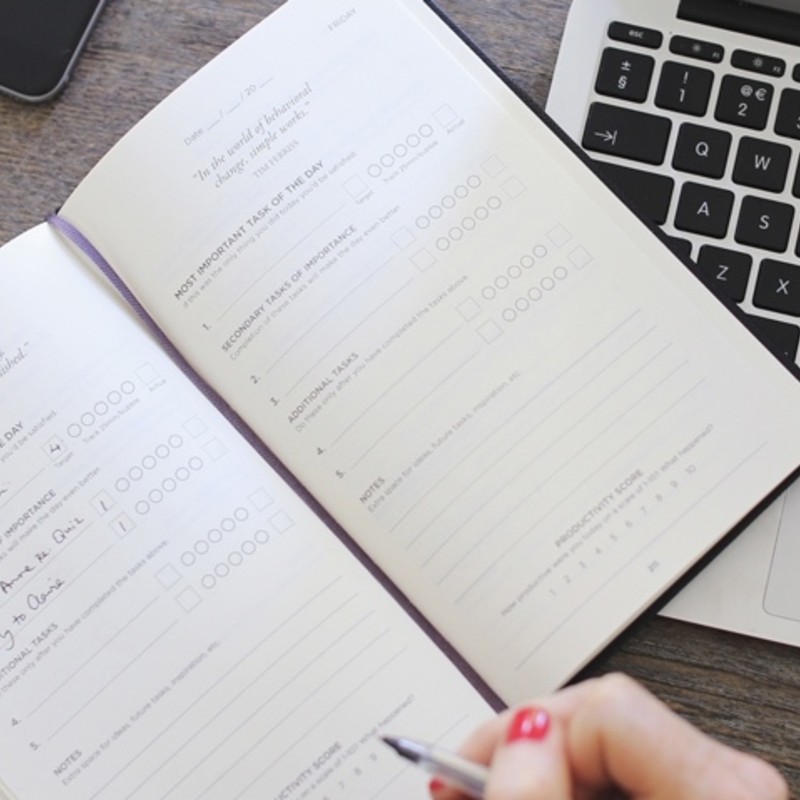 ished."
E DAY
you'd be satisfied.
4
Target
Track 25min/bubble
Actual
OF IMPORTANCE
will make the day even better.
Anne re Quiz 1
y to Claire 1
TIONAL TASKS
these only after you have completed the tasks above.
4.
5.
NOTES
Extra space for ideas, future tasks, inspiration, etc.
CTIVITY SCORE
on a scale of 1-10? What happened?
6 7 8 9
FRIDAY
Date __/__/20__
"In the world of behavioral
change, simple works."
TIM FERRISS
MOST IMPORTANT TASK OF THE DAY
If this was the only thing you did today you'd be satisfied.
1.
Target
Track 25min/bubble
Actual
SECONDARY TASKS OF IMPORTANCE
Completion of these tasks will make the day even better.
2.
3.
ADDITIONAL TASKS
Do these only after you have completed the tasks above.
4.
5.
NOTES
Extra space for ideas, future tasks, inspiration, etc.
PRODUCTIVITY SCORE
How productive were you today on a scale of 1-10? What happened?
1 2 3 4 5 6 7 8 9 10
esc F1 F2
± § ! 1 @ € 2
Q W
A S
Z X